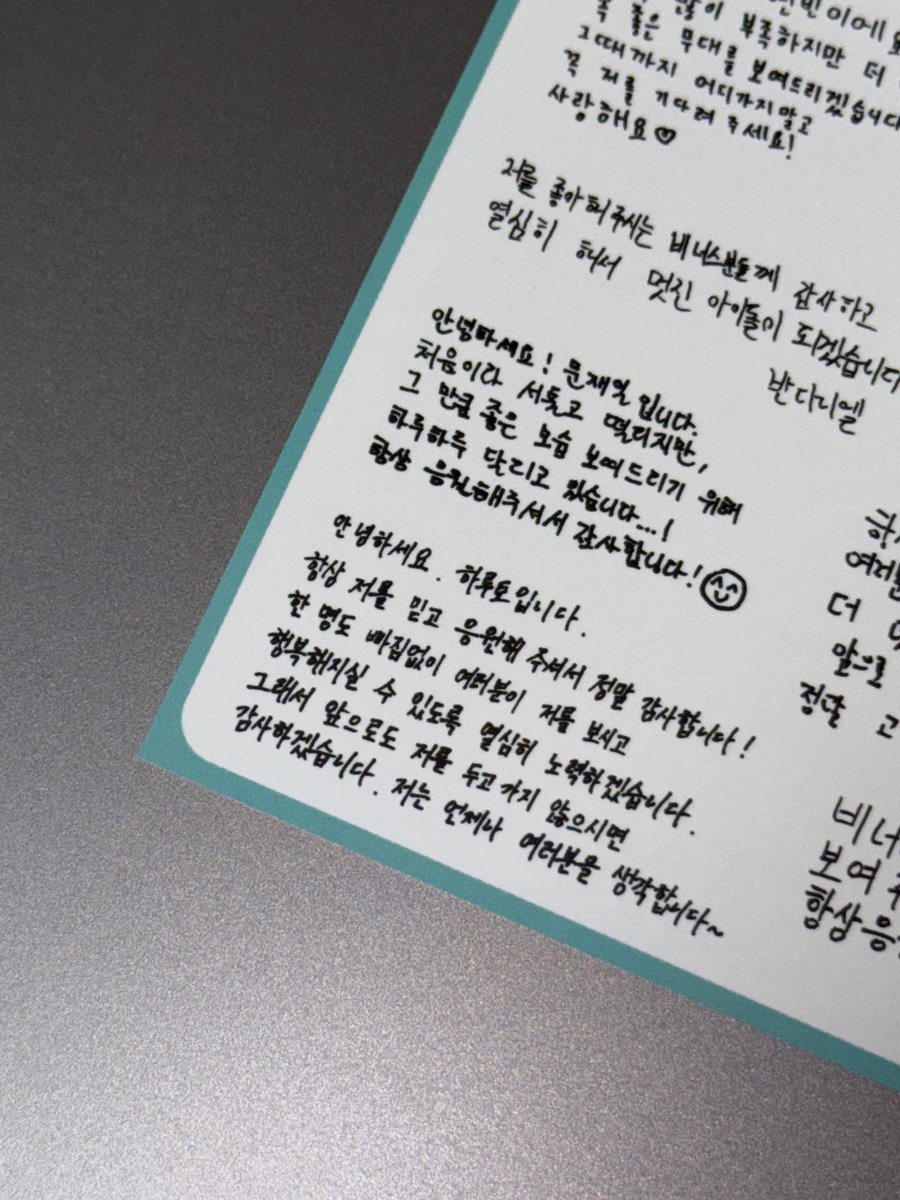 많이 부족하지만 더
좋은 무대를 보여드리겠습니다
그때까지 어디가지말고
꼭 저를 기다려 주세요!
사랑해요♡
저를 좋아해주시는 비너스분들께 감사하고
열심히 해서 멋진 아이돌이 되겠습니다
반다니엘
안녕하세요! 문재일입니다.
처음이라 서툴고 떨리지만,
그 만큼 좋은 모습 보여드리기 위해
하루하루 달리고 있습니다...!
항상 응원해주셔서 감사합니다!
안녕하세요. 하루토입니다.
항상 저를 믿고 응원해 주셔서 정말 감사합니다!
한 명도 빠짐없이 여러분이 저를 보시고
행복해지실 수 있도록 열심히 노력하겠습니다.
그래서 앞으로도 저를 두고 가지 않으시면
감사하겠습니다. 저는 언제나 여러분을 생각합니다~
더
앞으로
정말 고
비너
보여 주
항상 응